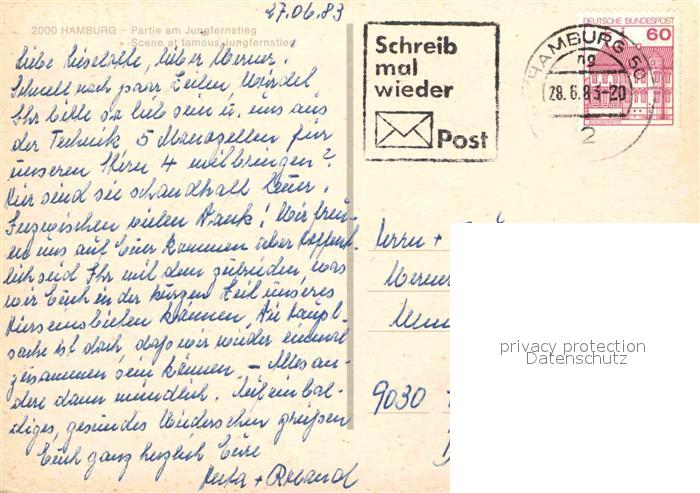 27.06.83
2000 HAMBURG - Partie am Jungfernstieg
Scene at famous Jungfernstieg
Liebe Liselotte, lieber Werner!
Schnell noch paar Zeilen, würdet
Ihr bitte so lieb sein u. uns aus
der Technik 5 Monozellen für
unseren Stern 4 mitbringen?
Hier sind sie schandhaft teuer.
Inzwischen vielen Dank! Wir freu-
en uns auf Euer Kommen aber hoffent-
lich seid Ihr mit dem zufrieden, was
wir Euch in der kurzen Zeit unseres
Hierseins bieten können, die Haupt-
sache ist doch, daß wir wieder einmal
zusammen sein können. - Alles an-
dere dann mündlich. Auf ein bal-
diges, gesundes Wiedersehen grüßen
Euch ganz herzlich Eure
+ Roland
Schreib
mal
wieder
Post
HAMBURG 50
ng
28.6.83-20
2
DEUTSCHE BUNDESPOST
60
Herrn +
Werner
9030
privacy protection
Datenschutz